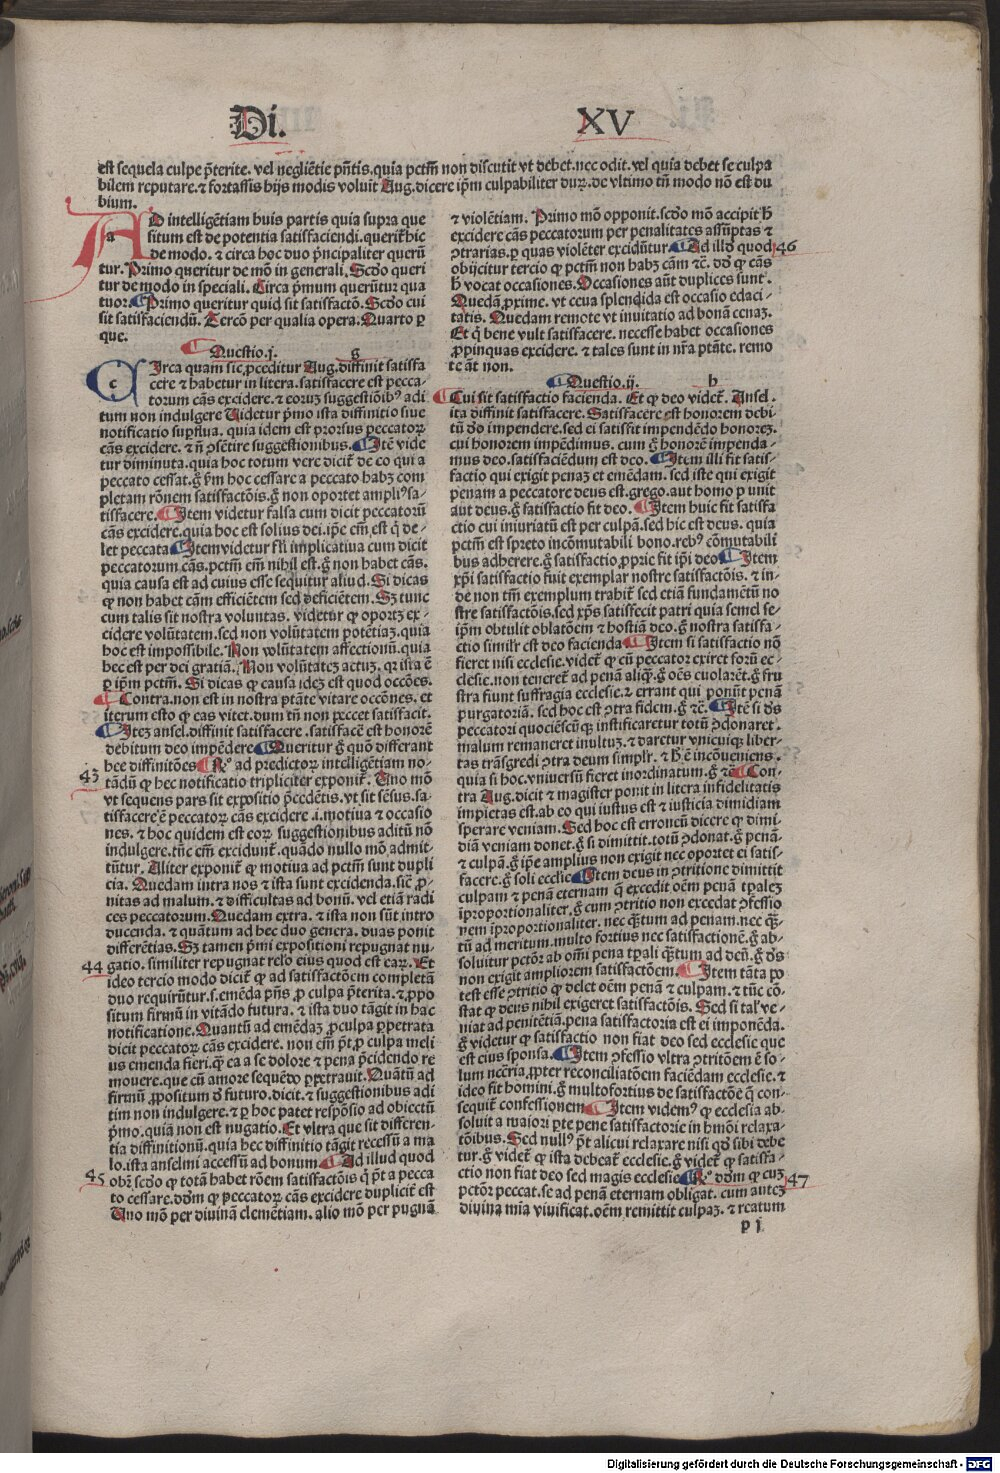 Di.
XV
est sequela culpe p̄terite. vel negliẽtie pñtis. quia pctm̃ non discutit vt debet. nec odit. vel quia debet se culpa
bilem reputare. ⁊ fortassis hijs modis voluit Aug. dicere ip̃m culpabiliter dur̃. de vltimo tñ modo nõ est du
bium.
AD intelligẽtiam huis partis quia supra que
situm est de potentia satisfaciendi. querit̃ hic
de modo. ⁊ circa hoc duo p̃ncipaliter querũ
tur. Primo queritur de mõ in generali. Scđo queri
tur de modo in speciali. Circa p̃mum querũtur qua
tuor. Primo queritur quid sit satisfactõ. Scđo cui
sit satisfaciendũ. Tercõ per qualia opera. Quarto ꝑ
que.
Questio.j. g
CIrca quam sic ꝓceditur Aug. diffinit satisfa
cere ⁊ habetur in litera. satisfacere est pecca-
torum cãs excidere. ⁊ eoruꝫ suggestiõibꝰ adi
tum non indulgere Videtur p̃mo ista diffinitio siue
notificatio suꝑflua. quia idem est prorsus peccatoꝝ
cãs excidere. ⁊ ñ ꝯsẽtire suggestionibus. Itẽ vide
tur diminuta. quia hoc totum vere dicit̃ de eo qui a
peccato cessat. g̃ ꝑm̃ hoc cessare a peccato habꝫ com
pletam rõnem satisfactõis. g̃ non oportet ampliꝰ sa-
tisfacere. Item videtur falsa cum dicit peccatorũ
cãs excidere. quia hoc est solius dei. ip̃e em̃ est q̃ de-
let peccata Item videtur fl̃i implicatiua cum dicit
peccatorum cãs. pctm̃ em̃ nihil est. g̃ non habet cãs.
quia causa est ad cuius esse sequitur aliud. Si dicas
ꝙ non habet cãm efficiẽtem sed deficiẽtem. Sꝫ tunc
cum talis sit nostra voluntas. videtur ꝙ oportꝫ ex-
cidere volũtatem. sed non volũtatem potẽtiaꝫ. quia
hoc est impossibile. Non volũtatem affectionũ. quia
hec est per dei gratiã. Non volũtateꝫ actuꝫ. qꝛ ista ẽ
ꝑ ip̃m pctm̃. Si dicas ꝙ causa ideꝫ est quod occões.
Contra. non est in nostra ptãte vitare occõnes. et
iterum esto ꝙ eas vitet. dum tñ non peccet satisfacit.
Iteꝫ ansel. diffinit satisfacere. satisfacẽ est honorẽ
debitum deo impẽdere Queritur g̃ quõ differant
hee diffinitões Rꝰ ad predictoꝝ intelligẽtiam no-
43
tãdũ ꝙ hec notificatio tripliciter exponit̃. Uno mõ
vt sequens pars sit expositio p̃cedẽtis. vt sit sẽsus. sa-
tisfacere ẽ peccatoꝝ cãs excidere .i. motiua ⁊ occasio
nes. ⁊ hoc quidem est eoꝝ suggestionibus aditũ nõ
indulgere. tũc em̃ excidunt̃. quãdo nullo mõ admit-
tũtur. Aliter exponit̃ ꝙ motiua ad pctm̃ sunt dupli
cia. Quedam intra nos ⁊ ista sunt excidenda. sic̃ ꝓ-
nitas ad malum. ⁊ difficultas ad bonũ. vel etiã radi
ces peccatorum. Quedam extra. ⁊ ista non sũt intro
ducenda. ⁊ quãtum ad hec duo genera. duas ponit
differẽtias. Sꝫ tamen p̃mi expositioni repugnat nu-
44
gatio. similiter repugnat rel̃o eius quod est eaꝝ. Et
ideo tercio modo dicit̃ ꝙ ad satisfactõem completã
duo requirũtur. s. emẽda p̃ñs ꝓ culpa p̃terita. ⁊ ꝓpo
situm firmũ in vitãdo futura. ⁊ ista duo tãgit in hac
notificatione. Quantũ ad emẽdaꝫ ꝓ culpa ꝑpetrata
dicit peccatoꝝ cãs excidere. non em̃ p̃t ꝓ culpa meli
us emenda fieri. q̃ ea a se dolore ⁊ pena p̃cidendo re
mouere. que cũ amore sequẽdo ꝑpetrauit. Quãtũ ad
firmũ ꝓpositum đ futuro. dicit. ⁊ suggestionibus adi
tim non indulgere. ⁊ ꝑ hoc patet respõsio ad obiectũ
p̃mo. quia non est nugatio. Et vltra que sit differen-
tia diffinitionũ. quia hec diffinitio tãgit recessũ a ma
lo. ista anselmi accessũ ad bonum Ad illud quod
45
obꝫ scđo ꝙ totã habet rõem satisfactõis q̃ p̃t a pecca
to cessare. dđm ꝙ peccatoꝝ cãs excidere duplicit̃ est
Uno mõ per diuinã clemẽtiam. alio mõ per pugnã
⁊ violẽtiam. Primo mõ opponit. scđo mõ accipit h̃
excidere cãs peccatorum per penalitates assũptas ⁊
ꝯtrarias. ꝑ quas violẽter excidũtur. Ad illđ quod
46
obijcitur tercio ꝙ pctm̃ non habꝫ cãm ⁊c̃. dđ ꝙ cãs
h̃ vocat occasiones. Occasiones aũt duplices sunt.
Quedã ꝓxime. vt ceua splendida est occasio edaci-
tatis. Quedam remote vt inuitatio ad bonã cenaꝫ.
Et q̃ bene vult satisfacere. necesse habet occasiones
ꝓpinquas excidere. ⁊ tales sunt in nr̃a ptãte. remo
te ãt non.
Questio.ij. h
Cui sit satisfactio facienda. Et ꝙ deo videt̃. Ansel.
ita diffinit satisfacere. Satisfacere est honorem debi
tũ đo impendere. sed ei satisfit impendẽdo honoreꝫ.
cui honorem impẽdimus. cum g̃ honorẽ impenda-
mus deo. satisfaciẽdum est deo. Item illi fit satis-
factio qui exigit penaꝫ et emẽdam. sed iste qui exigit
penam a peccatore deus est. grego. aut homo p̃ unit
aut deus. g̃ satisfactio fit deo. Item huic fit satisfa
ctio cui iniuriatũ est per culpã. sed hic est deus. quia
pctm̃ est spreto incõmutabili bono. rebꝰ cõmutabili
bus adherere. g̃ satisfactio ꝓprie fit ip̃i deo Item
xp̃i satisfactio fuit exemplar nostre satisfactõis. ⁊ in-
de non tm̃ exemplum trahit̃ sed etiã fundamẽtũ no
stre satisfactõis. sed xp̃s satisfecit patri quia semel se-
ip̃m obtulit oblatõem ⁊ hostiã deo. g̃ nostra satisfa-
ctio simil̃r est deo facienda Item si satisfactio nõ
fieret nisi ecclesie. videt̃ ꝙ cũ peccator exiret forũ ec-
clesie. non teneret̃ ad penã aliq̃. g̃ oẽs euolarẽt. g̃ fru
stra fiunt suffragia ecclesie. ⁊ errant qui ponũt penã
purgatoriã. sed hoc est ꝯtra fidem. g̃ ⁊c̃. Itẽ si đs
peccatori quociẽscũqꝫ iustificaretur totũ ꝯdonaret.
malum remaneret inultuꝫ. ⁊ daretur vnicuiqꝫ liber-
tas trãsgredi ꝯtra deum simpl̃r. ⁊ h̃ ẽ incõueniens.
quia si hoc. vniuersũ fieret inordinatum. g̃ ⁊c̃ Con-
tra Aug. dicit ⁊ magister ponit in litera infidelitatis
impietas est. ab eo qui iustus est ⁊ iusticia dimidiam
sperare veniam. Sed hoc est erroneũ dicere ꝙ dimi-
diã veniam donet. g̃ si dimittit. totũ ꝯdonat. g̃ penã
⁊ culpã. g̃ ip̃e amplius non exigit nec oportet ei satis-
facere. g̃ soli ecclie Item deus in ꝯtritione dimittit
culpam ⁊ penã eternam q̃ excedit oẽm penã tp̃aleꝫ
ĩproportionaliter. g̃ cum ꝯtritio non excedat ꝯfessio
nem ĩproportionaliter. nec q̃ꝫtum ad penam. nec q̃ꝫ-
tũ ad meritum. multo fortius nec satisfactionẽ. g̃ ab-
soluitur pctõr ab om̃i pena tp̃ali q̃ꝫtum ad deũ. g̃ đs
non exigit ampliorem satisfactõem. Item tãta põ
test esse ꝯtritio ꝙ delet oẽm penã ⁊ culpam. ⁊ tũc cõ-
stat ꝙ deus nihil exigeret satisfactõis. Sed si tal̃ ve-
niat ad penitẽtiã. pena satisfactoria est ei imponẽda.
g̃ videtur ꝙ satisfactio non fiat deo sed ecclesie que
est eius sponsa. Item ꝯfessio vltra ꝯtritõem ẽ so-
lum nec̃ria. ꝓpter reconciliatõem faciẽdam ecclesie. ⁊
ideo fit homini. g̃ multofortius de satisfactõe q̃ con-
sequit̃ confessionem Item videmꝰ ꝙ ecclesia ab-
soluit a maiori ꝑte pene satisfactorie in hmõi relaxa-
tõibus. Sed nullꝰ p̃t alicui relaxare nisi qđ sibi debe
tur. g̃ videt̃ ꝙ ista debeat̃ ecclesie. g̃ videt̃ ꝙ satisfa-
ctio non fiat deo sed magis ecclesie Rꝰ dđm ꝙ cuꝫ
47
pctõr peccat. se ad penã eternam obligat. cum auteꝫ
diuina mĩa viuificat. oẽm remittit culpaꝫ. ⁊ reatum
p j
Digitalisierung gefördert durch die Deutsche Forschungsgemeinschaft - DFG